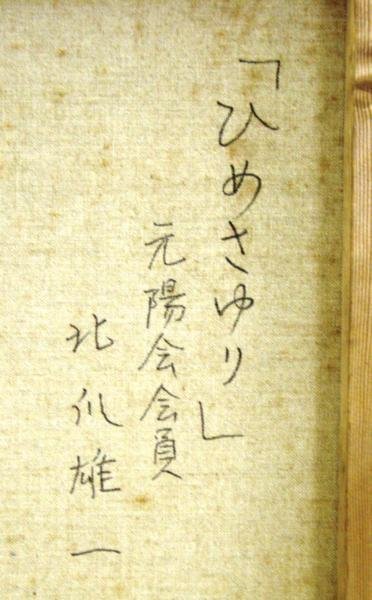 「ひめさゆり」
元陽会会員
北爪雄一